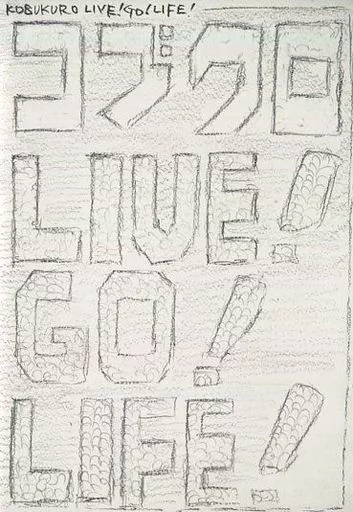 KOBUKURO LIVE! GO! LIFE!
コブクロ
LIVE!
GO!
LIFE!